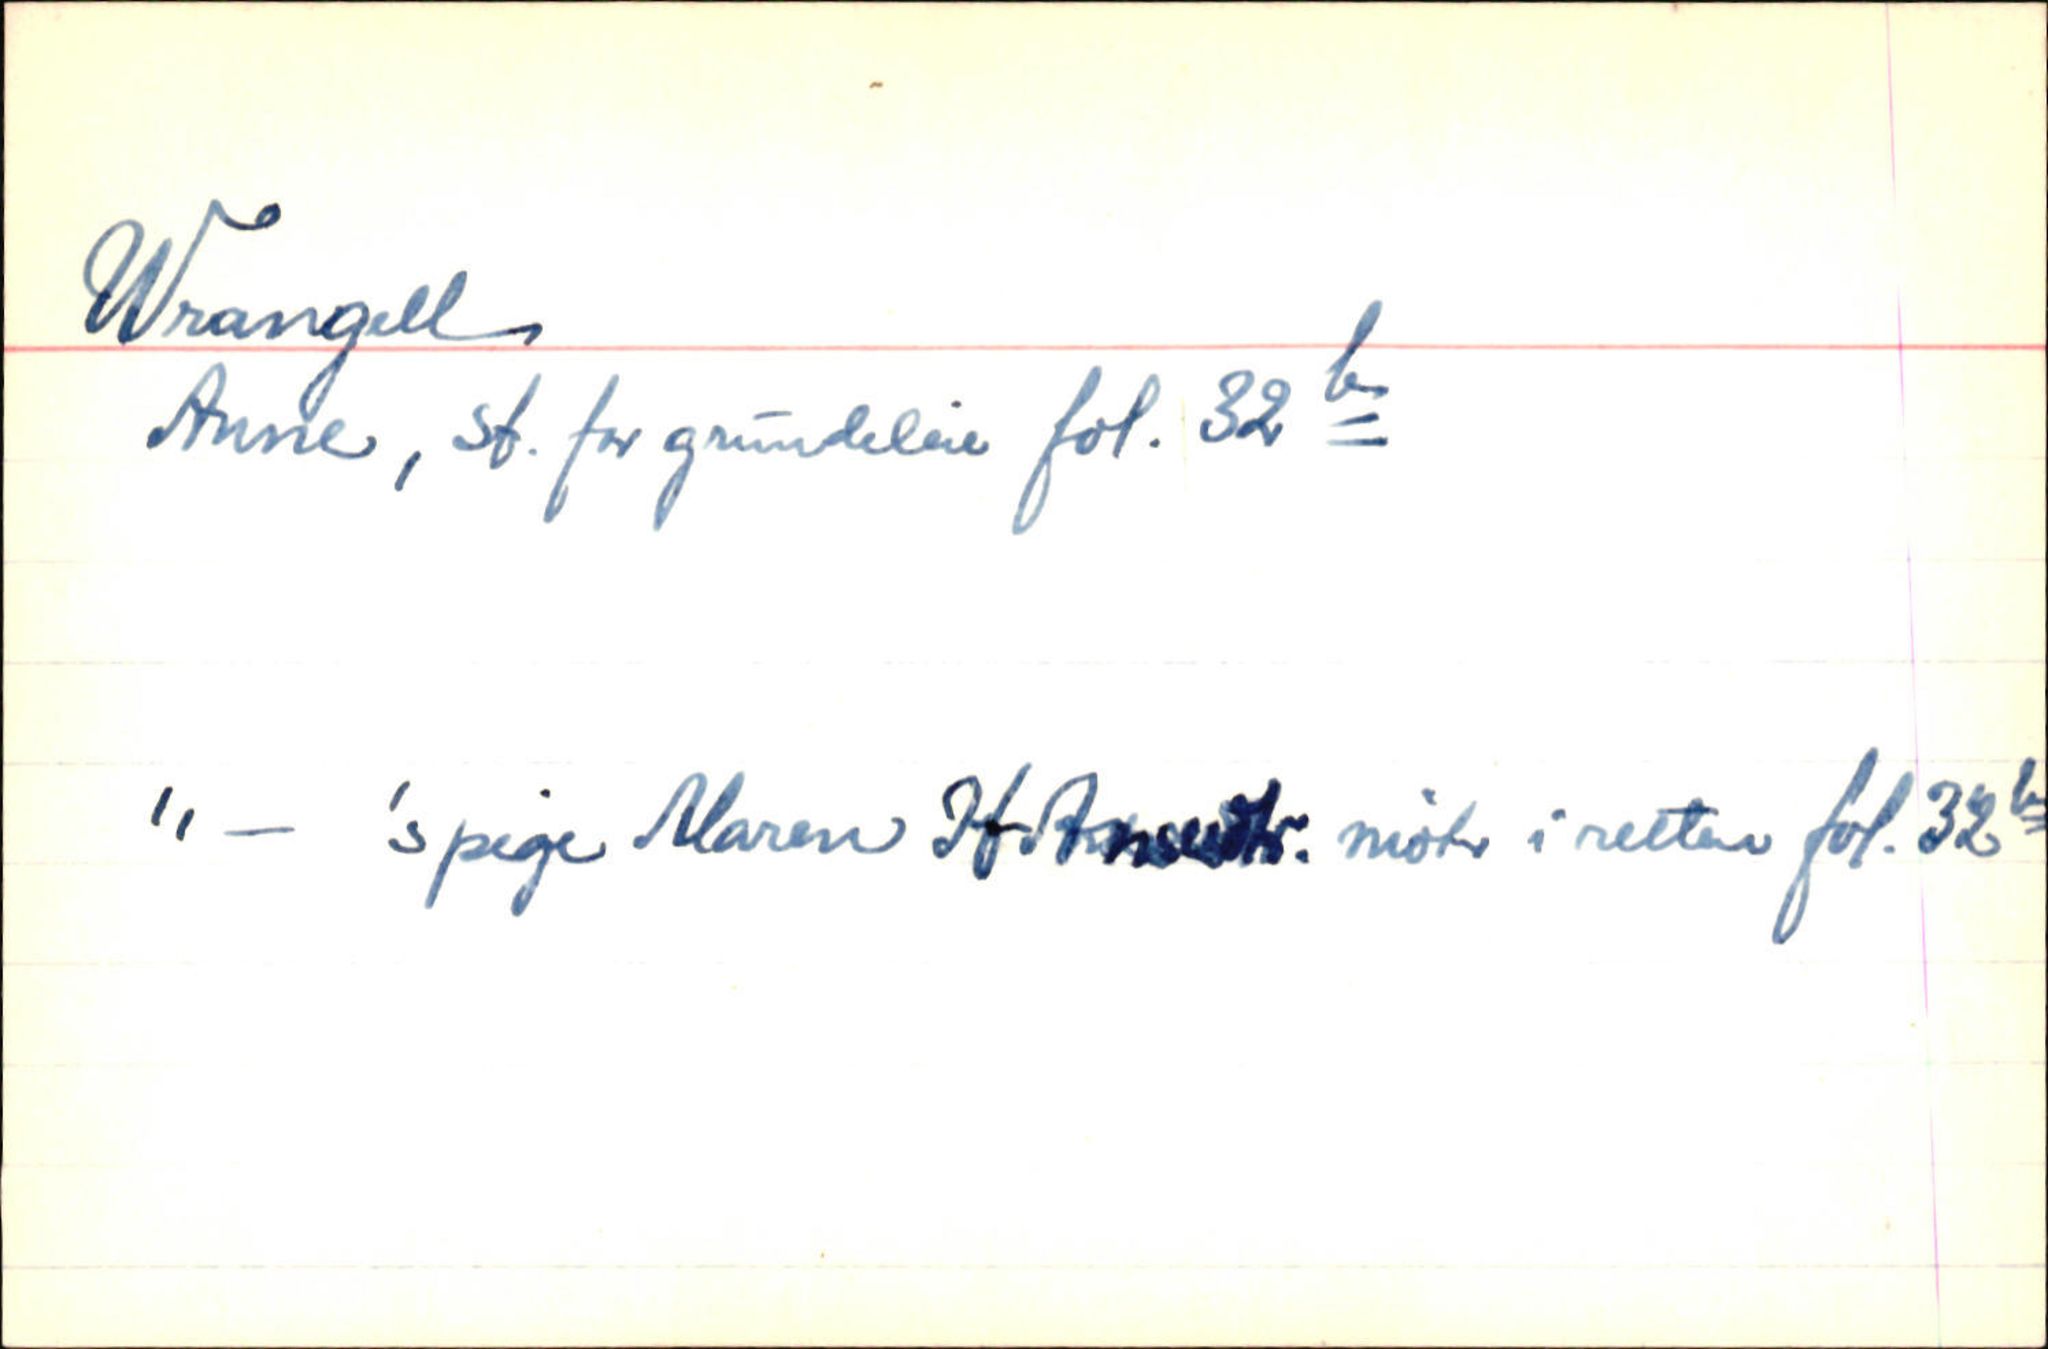 Wrangell
Anne, st. for grundeleie fol. 32 b
" — 's pige Maren möter i retten fol. 32 b